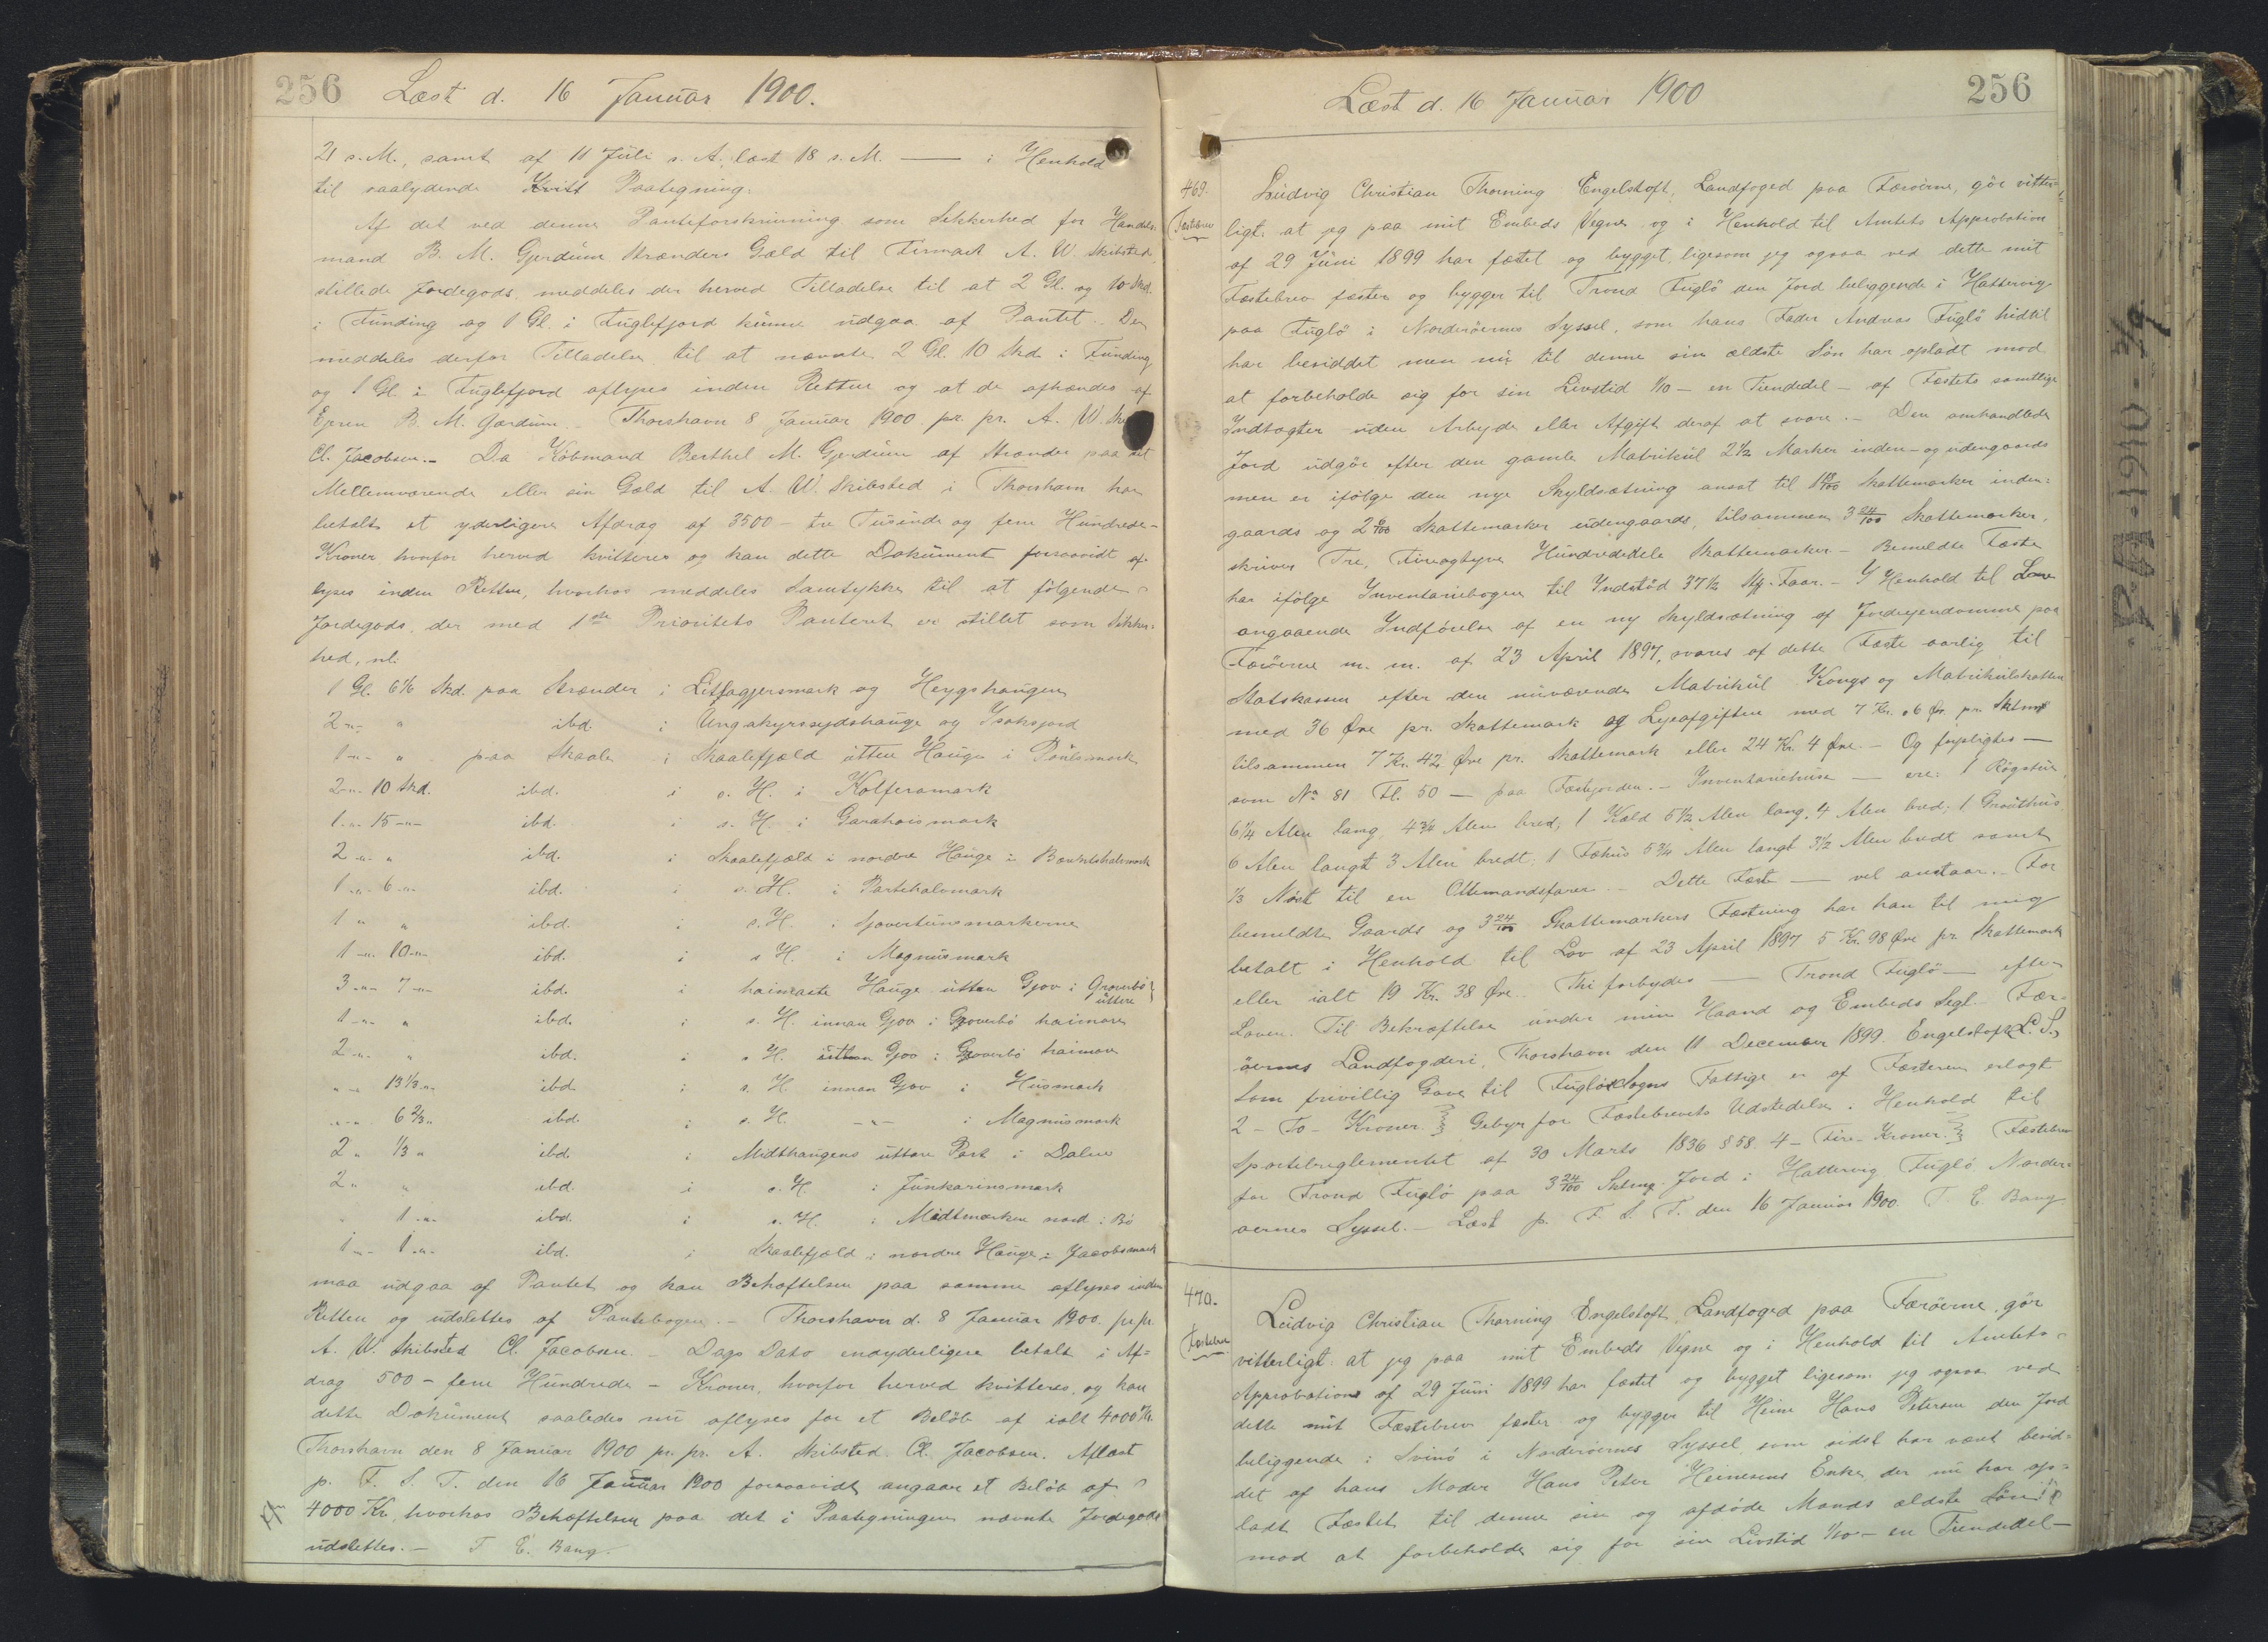 256 Læst d. 16 Januar 1900.
21 s. M., samt af 11 Juli s. A. læst 18 s. M. — i Henhold
til saalydende Kvitt Paategning:
Af det ved denne Panteforskrivning som Sikkerhed for Handels-
mand B. M. Gjerdum Strænders Gæld til Firmaet A. W. Skibsted,
stillede Jordegods, meddeles der herved Tilladelse til at 2 Gl. og 10 Skd.
i Funding og 1 Gl. i Fuglefjord kunne udgaa af Pantet. Der
meddeles derfor Tilladelse til at nævnte 2 Gl. 10 Skd. i Funding
og 1 Gl. i Fuglefjord aflyses inden Retten og at de afhændes af
Ejeren B. M. Gjærdum. Thorshavn 8 Januar 1900 pr. pr. A. W.
Cl. Jacobsen. – Da Købmand Berthel M. Gjerdum af Strænder paa sit
Mellemværende eller sin Gæld til A. W. Skibsted i Thorshavn har
betalt et yderligere Afdrag af 3500 – tre Tusinde og fem Hundrede –
Kroner, hvorfor herved kvitteres og kan dette Dokument forsaavidt af-
lyses inden Retten, hvorhos meddeles Samtykke til at følgende
Jordegods, der med 1ste Prioritets Panteret er stillet som Sikker-
hed, nl:
1 Gl. 6⅔ Skd. paa Strænder i Litlagjersmark og Heygshaugen
2 -"- " ibd. i Ungakyrssydshauge og Isaksjord
1 -"- " paa Skaale i Skaalefjæld utten Hauge i Poulsmark
2 -"- 10 Skd. ibd. i s. H. i Kolferamark
1 -"- 15 -"- ibd. i s. H. i Garahoismark
2 -"- " ibd. i Skaalefjæld i nordre Hauge i
1 -"- 6 -"- ibd. i s. H. i Partshalvmark
1 " " ibd. i s. H. i
1 -"- 10 -"- ibd. i s. H. i Magnusmark
3 -"- 7 -"- ibd. i haimaste Hauge uttan Gjov i Groverbø
uttere
1 -"- " ibd. i s. H. innan Gjov i Groverbø haimare
2 -"- " ibd. i s. H. uttan Gjov i Groverbø haimare
" -"- 13⅓ -"- ibd. i s. H. innan Gjov i Husmark
-"- 6⅔ " ibd. i s. H. -"- i Magnusmark
2 " ⅓ " ibd. i Midthaugens uttare Part i Dalen
2 " " ibd. i s. H. i Junkarinsmark
" 1 -"- ibd. i s. H. i Midtmarken nord i Bø
1 -"- 1 -"- ibd. i Skaalefjæld i nordre Hauge i Jacobsmark
maa udgaa af Pantet og kan Behæftelsen paa samme aflyses inden
Retten og udslettes af Pantebogen. – Thorshavn d. 8 Januar 1900. pr. pr.
A. W. Skibsted Cl. Jacobsen. – Dags Dato endyderligere betalt i Af-
drag 500 – fem Hundrede – Kroner, hvorfor herved kvitteres, og kan
dette Dokument saaledes nu aflyses for et Beløb af ialt 4000 Kr.
Thorshavn den 8 Januar 1900 pr. pr. A. Skibsted. Cl. Jacobsen. Aflæst
p. F. S. T. den 16 Januar 1900 forsaavidt angaar et Beløb af
4000 Kr., hvorhos Behæftelsen paa det i Paategningen nævnte Jordegods
udslettes. – T. E. Bang.
Læst d. 16 Januar 1900 256
469.
Fæstebrev
Ludvig Christian Thorning Engelstoft, Landfoged paa Færøerne, gör vitter-
ligt: at jeg paa mit Embeds Vegne og i Henhold til Amtets Approbation
af 29 Juni 1899 har fæstet og bygget, ligesom jeg ogsaa ved dette mit
Fæstebrev fæster og bygger til Trond Fuglø den Jord beliggende i Hattervig
paa Fuglø i Norderøernes Syssel, som hans Fader Andreas Fuglø hidtil
har besiddet men nu til denne sin ældste Søn har opladt mod
at forbeholde sig for sin Livstid 1/10 – en Tiendedel – af Fæstets samtlige
Indtægter uden Arbyde eller Afgift deraf at svare. – Den omhandlede
Jord udgör efter den gamle Matrikul 2½ Marker inden- og udengaards
men er ifölge den nye Skyldsætning ansat til Skattemarker inden-
gaards og Skattemarker udengaards, tilsammen 3 24/100 Skattemarker,
skriver Tre, Fireogtyve Hundrededele Skattemarker – Bemeldte Fæste
har ifölge Inventariebogen til Indstød 37½ Stk. Faar. – I Henhold til Lov
angaaende Indførelse af en ny Skyldsætning af Jordejendomme paa
Færöerne m. m. af 23 April 1897, svares af dette Fæste aarlig til
Statskassen efter den nuværende Matrikul Kongs og Matrikulskatten
med 36 Øre pr. Skattemark og Lejeafgiften med 7 Kr. 06 Ør. pr. Sktmrk
tilsammen 7 Kr. 42 Øre pr. Skattemark eller 24 Kr. 4 Øre. – Og forpligtes —
som No 81 Fl. 50 — paa Fæstejorden. – Inventariehuse — ere: 1 Røgstue
6¼ Alen lang, 4¾ Alen bred; 1 Kæld 5½ Alen lang, 4 Alen bred; 1 Grouthus
6 Alen langt 3 Alen bredt; 1 Fæhus 5¾ Alen langt 3½ Alen bredt samt
⅓ Nöst til en Ottemandsfarer. – Dette Fæste — vel anstaar. – For
bemeldte Gaards og 3 24/100 Skattemarkers Fæstning har han til mig
betalt i Henhold til Lov af 23 April 1897 5 Kr. 98 Øre pr. Skattemark
eller ialt 19 Kr. 38 Øre. Thi forbydes — Trond Fuglø — efter
Loven. Til Bekræftelse under min Haand og Embeds Segl. Fær-
øernes Landfogderi, Thorshavn den 11 December 1899. Engelstoft (L. S.)
Som frivillig Gave til Fuglø Sogns Fattige er af Fæsteren erlagt
2 – To – Kroner. Gebyr for Fæstebrevets Udstedelse i Henhold til
Sportelreglementet af 30 Marts 1836 § 58. 4 – Fire – Kroner. Fæstebrev
for Trond Fuglø paa 3 24/100 Sktmrg. Jord i Hattervig Fuglø, Norder-
øernes Syssel. – Læst p. F. S. T. den 16 Januar 1900. T. E. Bang
470.
Fæstebrev
Ludvig Christian Thorning Engelstoft, Landfoged paa Færöerne, gör
vitterligt: at jeg paa mit Embeds Vegne og i Henhold til Amtets
Approbation af 29 Juni 1899 har fæstet og bygget ligesom jeg ogsaa ved
dette mit Fæstebrev fæster og bygger til Heine Hans Petersen den Jord
beliggende i Svinö i Norderöernes Syssel, som sidst har været besid-
det af hans Moder Hans Peter Heinesens Enke, der nu har op-
ladt Fæstet til denne sin og afdöde Mands ældste Sön
mod at forbeholde sig for sin Livstid 1/10 – en Tiendedel –